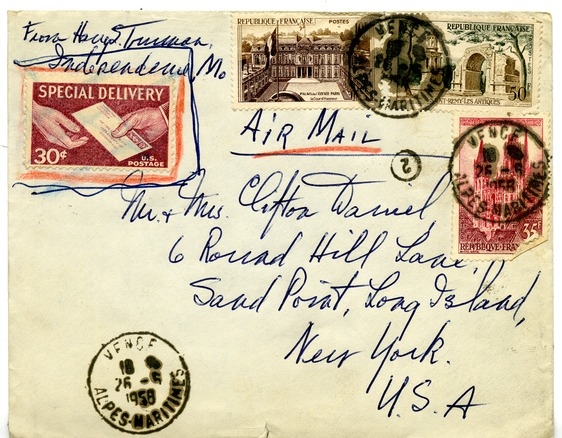 From Harry S. Truman,
Independence, Mo
SPECIAL DELIVERY
30¢
U.S. POSTAGE
REPUBLIQUE FRANÇAISE POSTES
PALAIS DE L'ELYSEE PARIS
REPUBLIQUE FRANÇAISE
50F
SAINT-REMY LES ANTIQUES
VENCE
ALPES-MARITIMES
AIR MAIL
2
VENCE
18
26 -5
1958
ALPES-MARITIMES
35F
REPUBLIQUE FRAN
Mr. & Mrs. Clifton Daniel,
6 Round Hill Lane,
Sand Point, Long Island,
New York.
U.S.A
VENCE
18
26 -5
1958
ALPES-MARITIMES